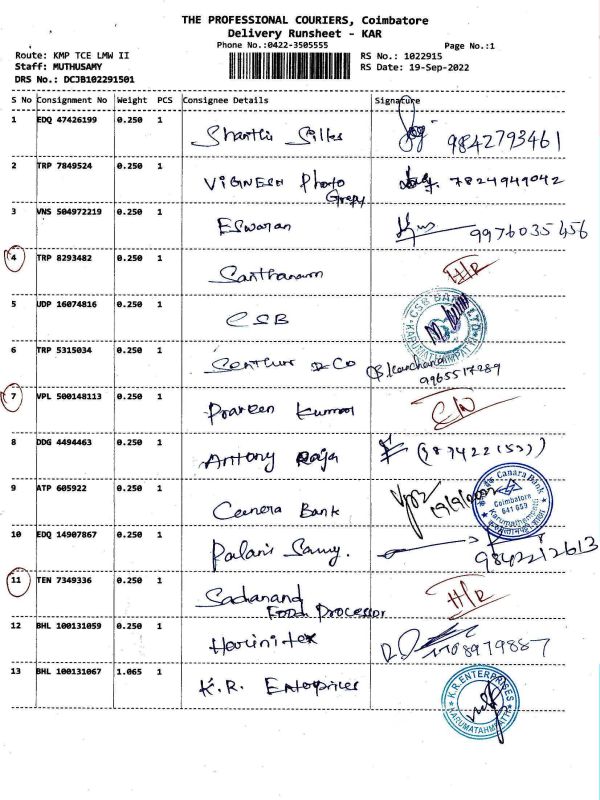 THE PROFESSIONAL COURIERS, Coimbatore
Delivery Runsheet - KAR
Phone No.:0422-3505555 Page No.:1
Route: KMP TCE LMW II RS No.: 1022915
Staff: MUTHUSAMY RS Date: 19-Sep-2022
DRS No.: DCJB102291501
S No Consignment No Weight PCS Consignee Details Signature
1 EDQ 47426199 0.250 1 Shanthi Silks 9842793461
2 TRP 7849524 0.250 1 VIGNESH Photo 7824949042
Grapy
3 VNS 504972219 0.250 1 Eswaran 9976035456
4 TRP 8293482 0.250 1 Santhanam H/R
5 UDP 16074816 0.250 1 CSB CSB BANK LTD KARUMATHAMPATTI
6 TRP 5315034 0.250 1 Senthur & Co
9965517289
7 VPL 500148113 0.250 1 Praveen Kumar
8 DDG 4494463 0.250 1 Antony Raja
9 ATP 605922 0.250 1 Canera Bank Canara Bank Coimbatore 641 659 Karumathampatti
10 EDQ 14907867 0.250 1 Palani Samy. 9842212613
11 TEN 7349336 0.250 1 Sadanand H/R
Food Processor
12 BHL 100131059 0.250 1 Harinitex
13 BHL 100131067 1.065 1 K.R. Enterprises K.R.ENTERPRISES KARUMATAHMPATTI